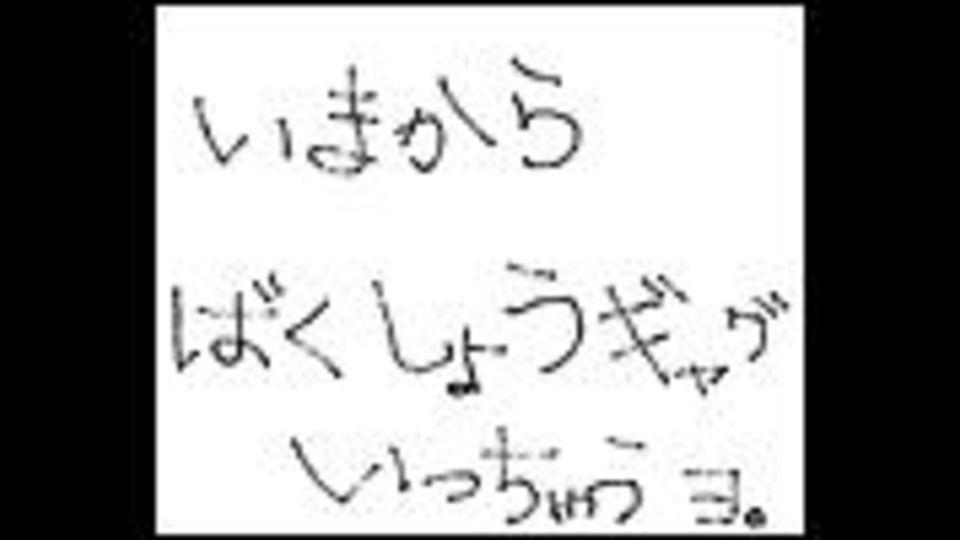 いまから
ばくしょうギャグ
いっちゃうヨ。